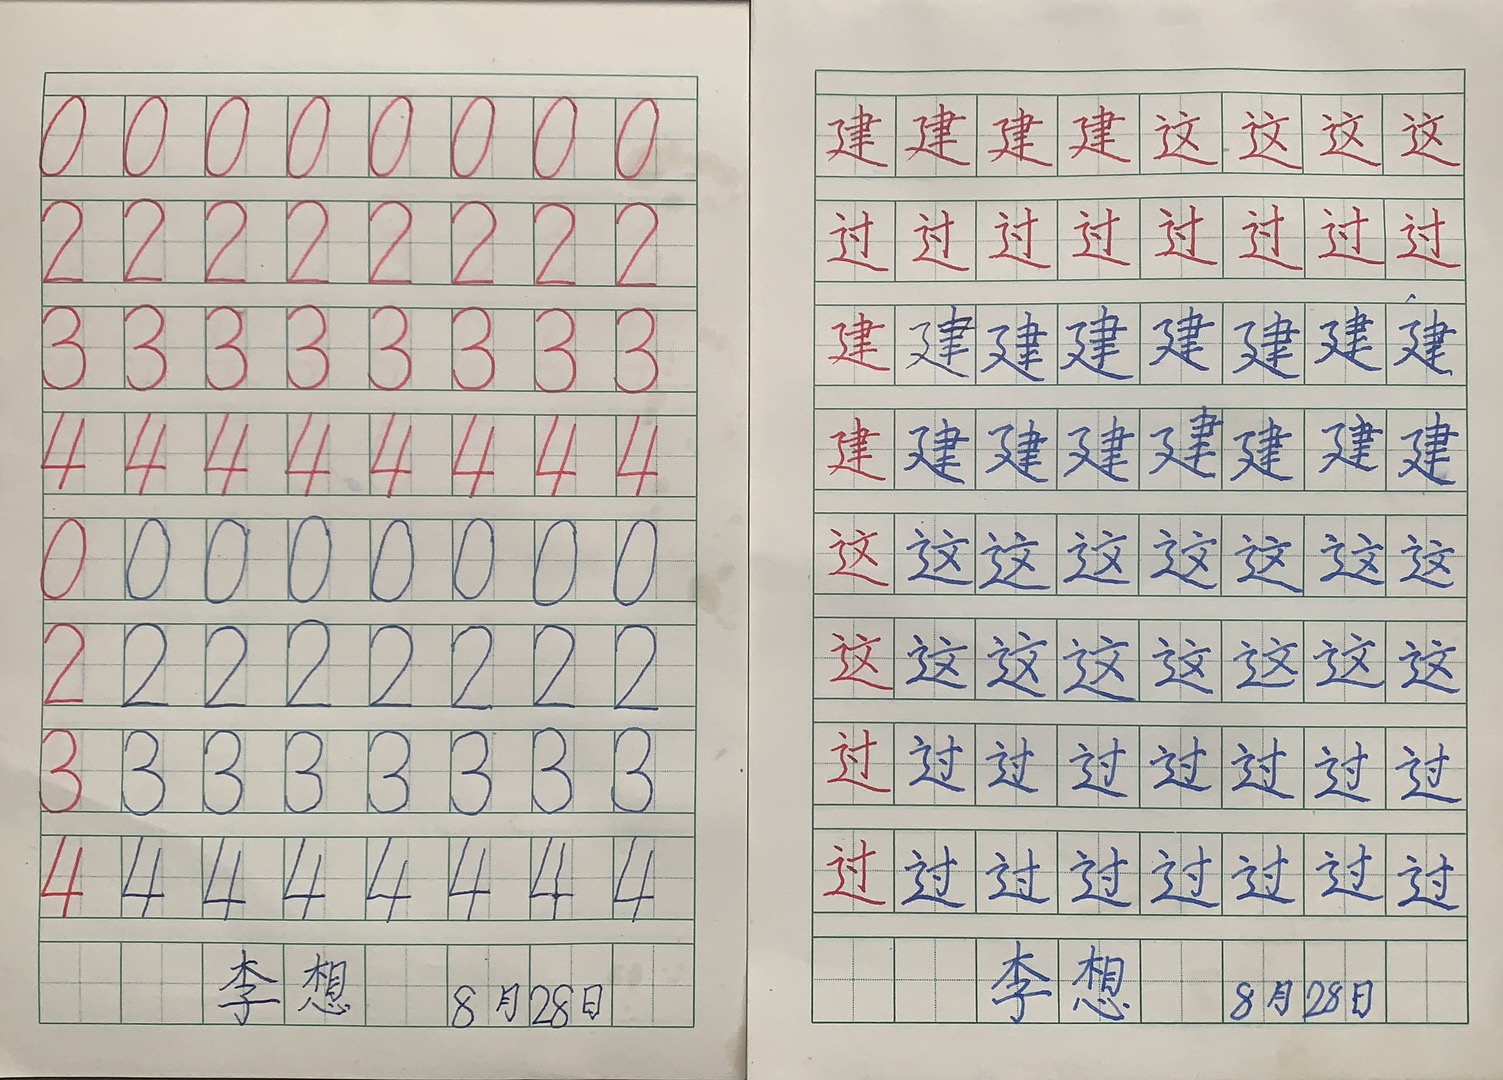 0 0 0 0 0 0 0 0
2 2 2 2 2 2 2 2
3 3 3 3 3 3 3 3
4 4 4 4 4 4 4 4
0 0 0 0 0 0 0 0
2 2 2 2 2 2 2 2
3 3 3 3 3 3 3 3
4 4 4 4 4 4 4 4
李想 8月28日
建建建建这这这这
过过过过过过过过
建建建建建建建建
建建建建建建建建
这这这这这这这这
这这这这这这这这
过过过过过过过过
过过过过过过过过
李想 8月28日